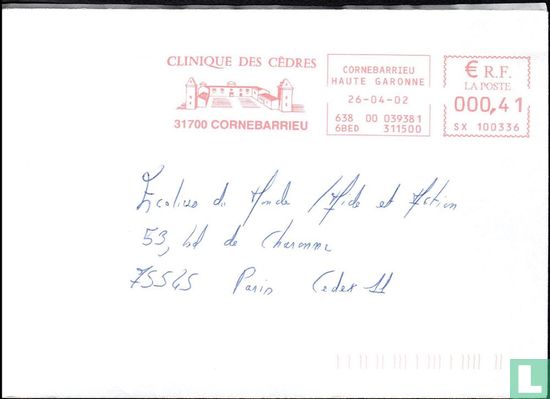 CLINIQUE DES CÈDRES
31700 CORNEBARRIEU
CORNEBARRIEU
HAUTE GARONNE
26-04-02
638 00 039381
6BED 311500
€ R.F.
LA POSTE
000,41
SX 100336
Ecoliers du Monde / Aide et Action
53, bd de Charonne
75545 Paris Cedex 11
LastDodo